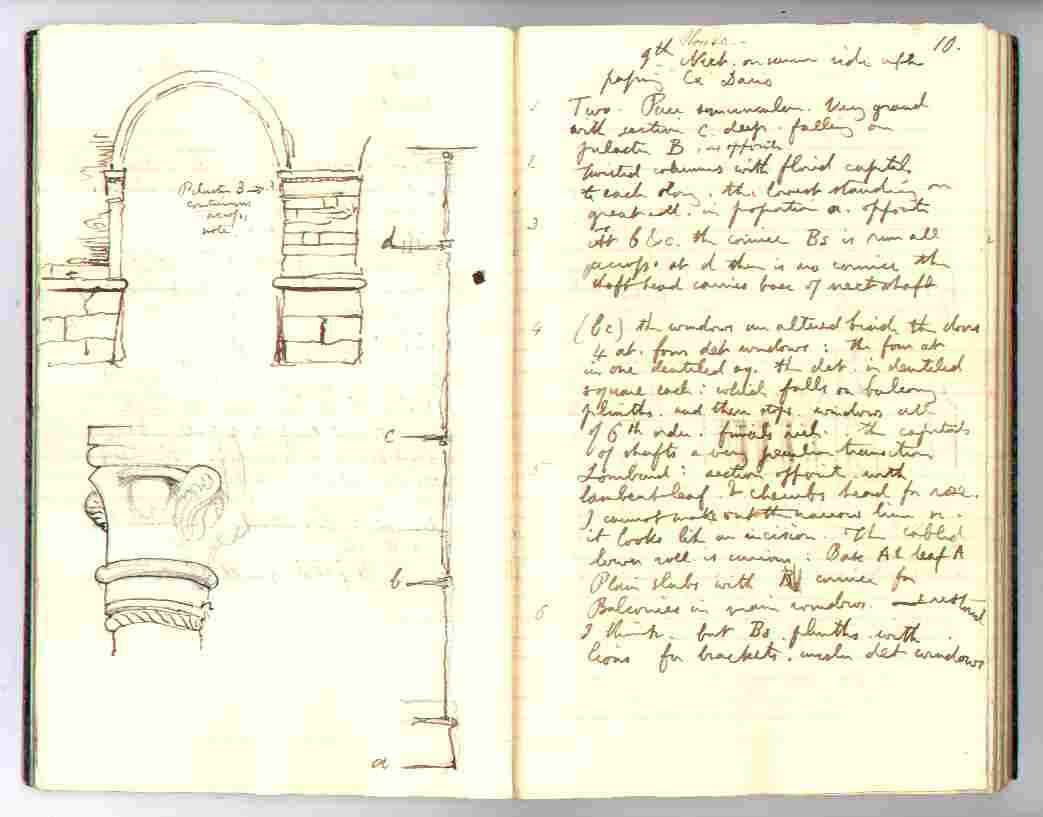 Pilaster B
continuous
across,
note.
d
c
b
a
House.
10.
9th Next. on same side after
passing Ca Dario
1 Two. Pure semicircular. Very grand
with section C. deep. falling on
pilaster B. as opposite
2 twisted columns with florid capitals
to each story. the lowest standing on
great roll. in proportion a. opposite
3 At b & c. the cornice Bs is run all
across. at d there is no cornice the
shaft head carries base of next shaft
4 (bc) the windows are altered behind the doors
4 at. four det windows: the four at
in one dentiled sq. the det. in dentiled
square each: which falls on balcony
plinths. and there stops. windows all
of 6th order. finials rich. The capitals
of shafts a very peculiar transition
5 Lombard: section opposite. with
lambent leaf. & chamb head for rose.
I cannot make out the narrow line or.
it looks like an incision. The cabled
lower roll is curious: Base A & leaf A
Plain slabs with cornice for
6 Balconies in main windows. restored
I think. but Bs. plinths. with
lions for brackets. under det windows